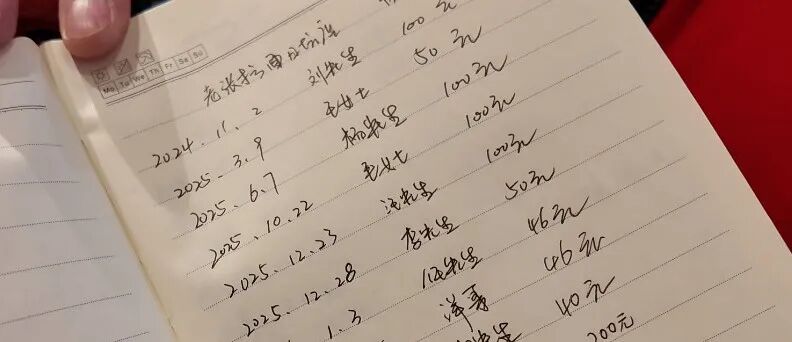 Mo Tu We Th Fr Sa Su
老张
2024.11.2 刘先生 100元
2025.3.9 王女士 50元
2025.6.7 杨先生 100元
2025.10.22 王女士 100元
2025.12.23 汪先生 100元
2025.12.28 李先生 50元
.1.3 任先生 46元
洋哥 46元
先生 40元
200元